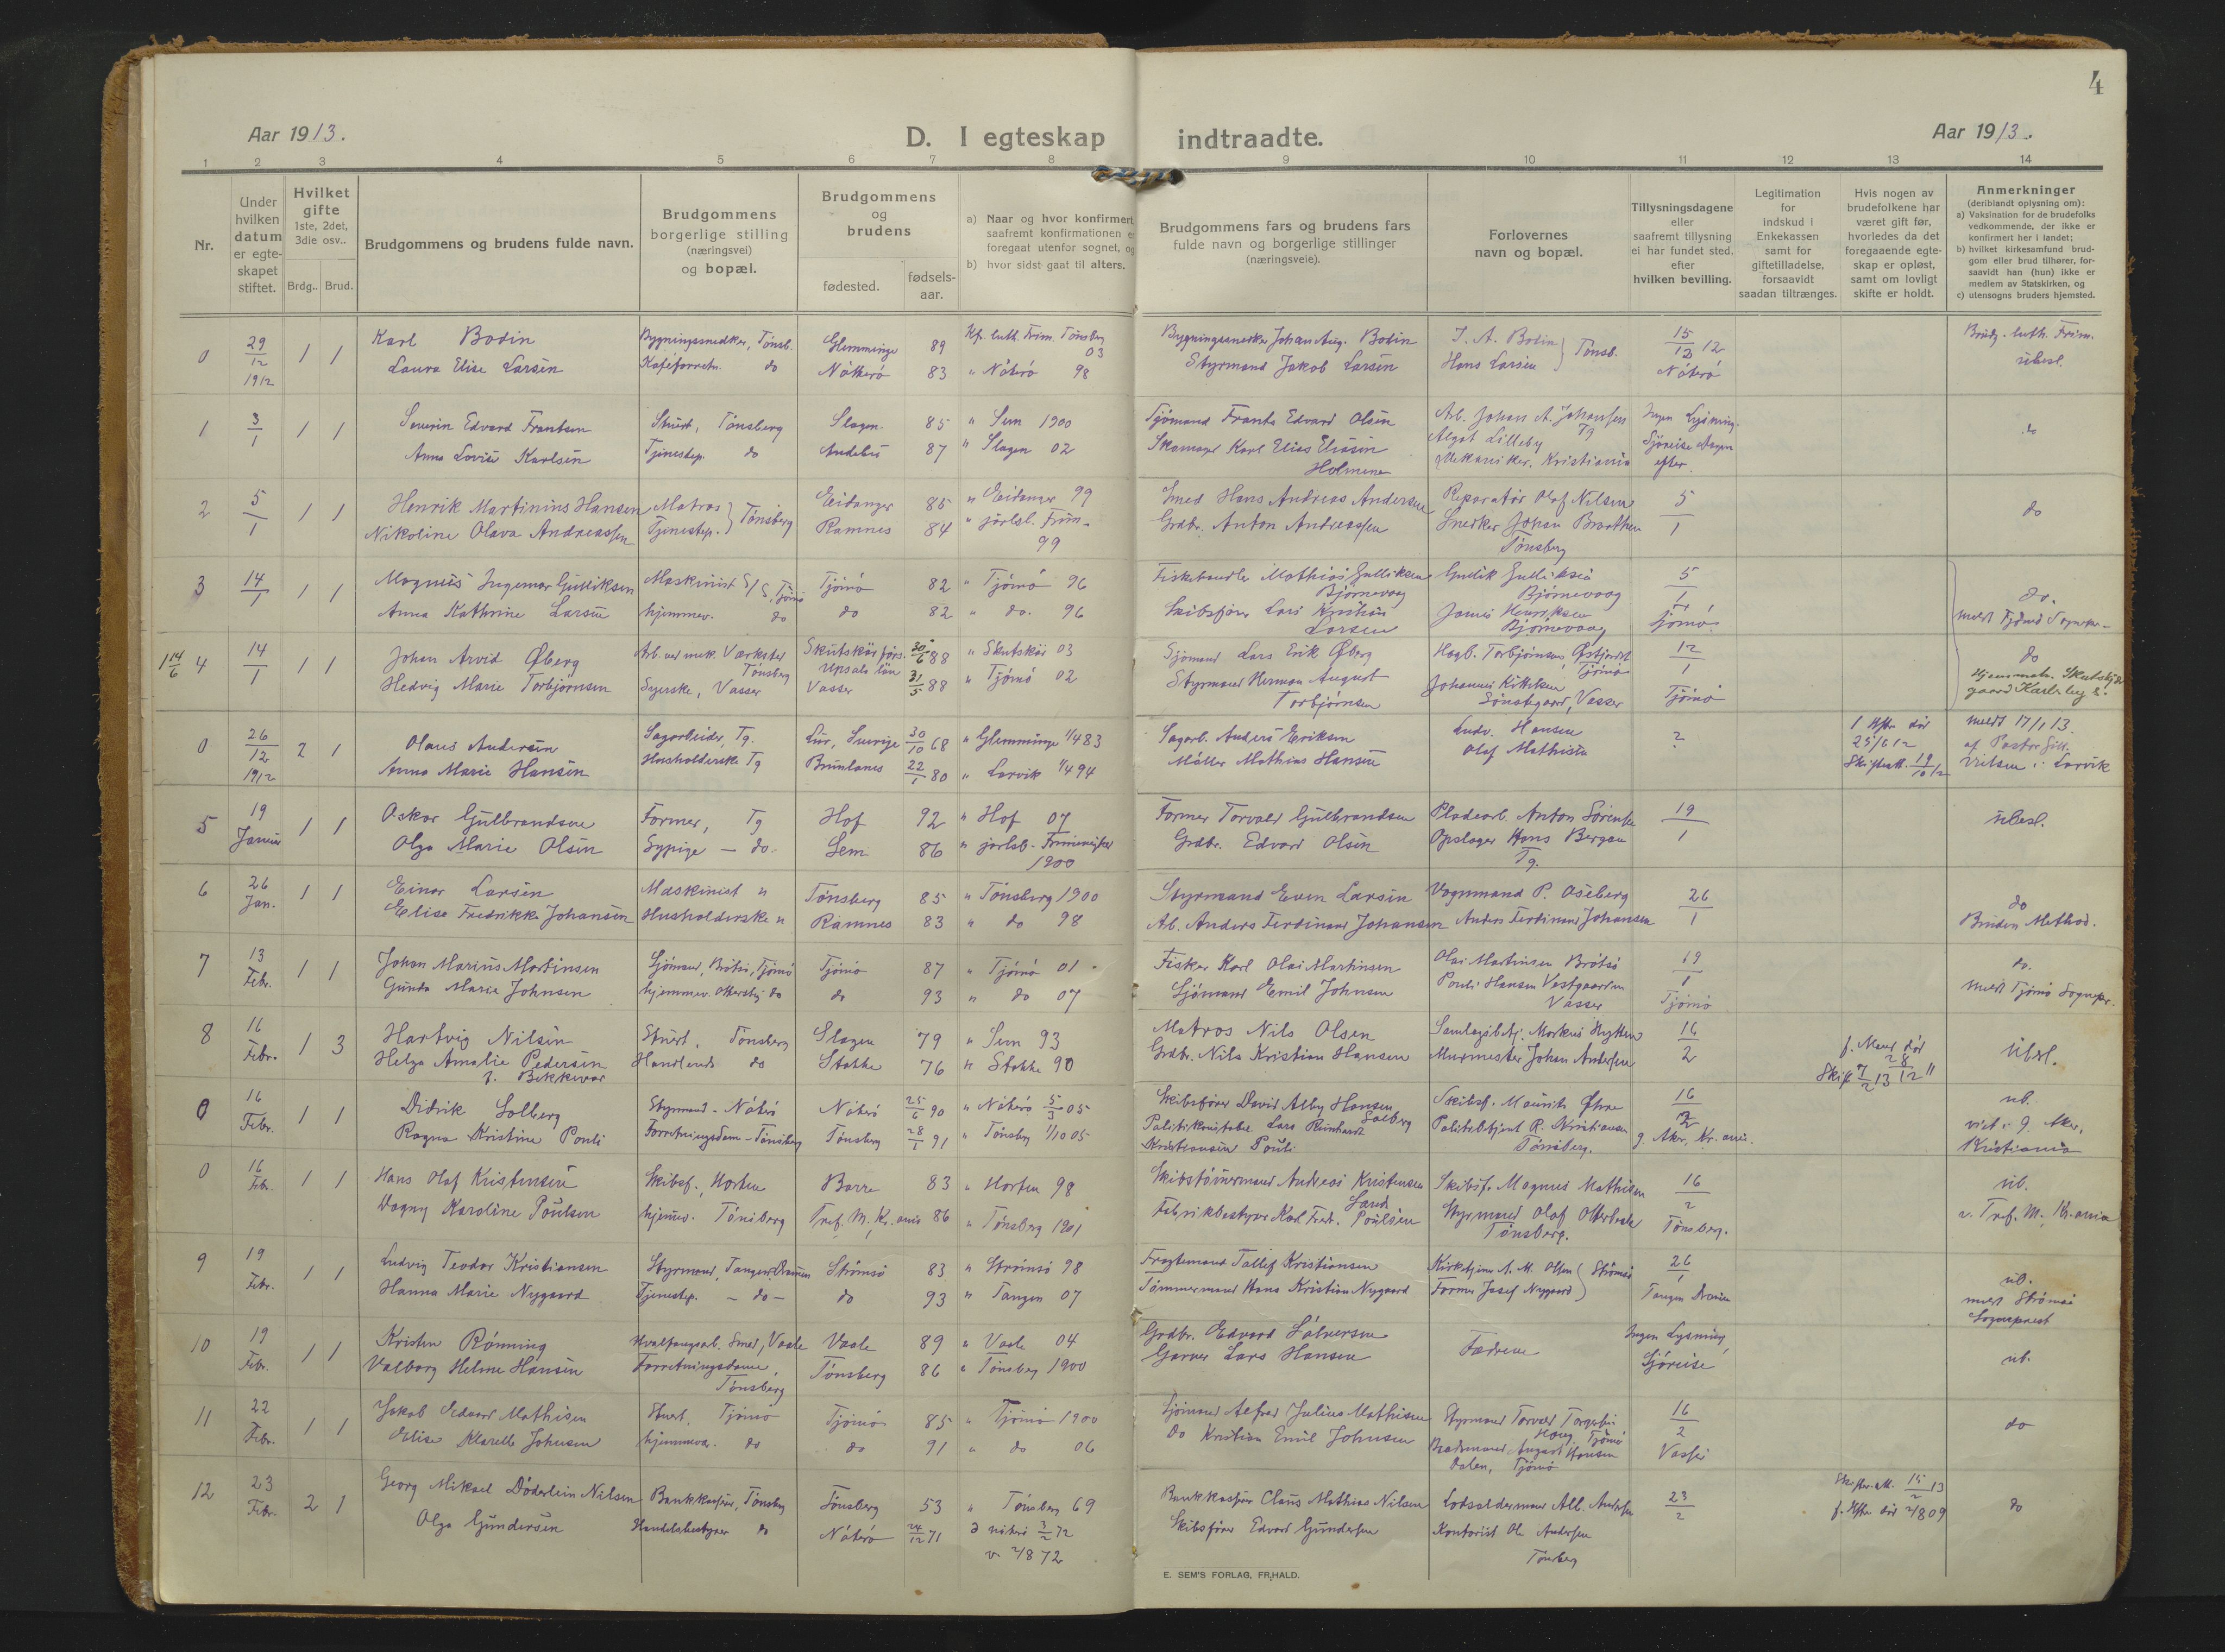 4
Aar 1913.
D. I egteskap indtraadte.
Aar 1913.
1 2 3 4 5 6 7 8 9 10 11 12 13 14
Nr.
Under hvilken datum er egteskapet stiftet.
Hvilket gifte 1ste, 2det, 3die osv..
Brdg.. Brud.
Brudgommens og brudens fulde navn.
Brudgommens borgerlige stilling (næringsvei) og bopæl.
Brudgommens og brudens
fødested.
fødsels-aar.
a) Naar og hvor konfirmert, saafremt konfirmationen er foregaat utenfor sognet, og
b) hvor sidst gaat til alters.
Brudgommens fars og brudens fars fulde navn og borgerlige stillinger (næringsveie).
Forlovernes navn og bopæl.
Tillysningsdagene eller saafremt tillysning ei har fundet sted, efter hvilken bevilling.
Legitimation for indskud i Enkekassen samt for giftetilladelse, forsaavidt saadan tiltrænges.
Hvis nogen av brudefolkene har været gift før, hvorledes da det foregaaende egteskap er opløst, samt om lovligt skifte er holdt.
Anmerkninger (deriblandt oplysning om):
a) Vaksination for de brudefolks vedkommende, der ikke er konfirmert her i landet;
b) hvilket kirkesamfund brudgom eller brud tilhører, forsaavidt han (hun) ikke er medlem av Statskirken, og
c) utensogns bruders hjemsted.
0 29/12 1912 1 1 Karl Bodin Bygningssnedker, Tönsb. Glemminge 89 Kf. luth. Frim. Tönsberg 03 Bygningssnerker Johan Aug. Bodin J. A. Bodin } Tönsb. 15/12 12 Brudg. luth. Frim.
Laura Elise Larsen Kaféforretn. do Nötterö 83 " Nöterö 98 Styrmand Jakob Larsen Hans Larsen Nöterö ubesl.
1 3/1 1 1 Severin Edvard Frantsen Stuert, Tönsberg Slagen 85 " Sem 1900 Sjömand Frants Edvard Olsen Arb. Johan A. Johansen Tg Ingen Lysning. do
Anna Lovise Karlsen Tjenestep. do Andebu 87 " Slagen 02 Skomager Karl Elias Eliasen Holmene Algot Lilleby Mekaniker, Kristiania Sjöreise efter.
2 5/1 1 1 Henrik Martinius Hansen Matros } Tönsberg Eidanger 85 " Eidanger 99 Smed Hans Andreas Andersen Reparatör Olaf Nilsen 5/1 do
Nikoline Olava Andreassen Tjenestep. Ramnes 84 " jarlsb. Frim. 99 Grdbr. Anton Andreassen Snerker Johan Braathen Tönsberg
3 14/1 1 1 Magnus Ingemar Gulliksen Maskinist S/S, Tjömö Tjömö 82 " Tjömö 96 Fiskehandler Mathias Gulliksen Björnevaag Gullik Gulliksen Björnevaag 5/1 do.
Anna Kathrine Larsen hjemmev. do do 82 " do. 96 Skibsförer Lars Larsen Henriksen Björnevaag Tjömö meldt Tjömö Sognepr.
1 14/6 4 14/1 1 1 Johan Arvid Öberg Arb. ved mek. Værksted Tönsberg Skutskär Upsala län 30/6 88 " Skutskär 03 Sjömand Lars Erik Öberg Hagb. Torbjörnsen, Tjömö 12/1 do
Hedvig Marie Torbjörnsen Syerske, Vasser Vasser 31/5 88 " Tjömö 02 Styrmand Herman August Torbjörnsen Johannes Vasser Tjömö
0 26/12 1912 2 1 Olaus Andersen Sagarbeider, Tg. Lur, Sverige 30/10 68 " Glemminge 1/4 83 Sagarb. Anders Eriksen Ludv. Hansen ? 1 Hstr död 25/6 12 meldt 17/1 13.
Anna Marie Hansen Husholderske Tg Brunlanes 22/1 80 " Larvik 1/4 94 Möller Mathias Hansen Olaf Mathisen Skifteatt. 19/10 12 af Pastor i Larvik
5 19 Januar 1 1 Oskar Gulbrandsen Former, Tg Hof 92 " Hof 07 Former Torvald Gulbrandsen Pladearb. Anton Sörensen 19/1 ubesl.
Olga Marie Olsen Sypige - do Sem 86 " jarlsb. Frimenighed 1900 Grdbr. Edvard Olsen Opslager Hans Bergan Tg.
6 26 Jan. 1 1 Einar Larsen Maskinist " Tönsberg 85 " Tönsberg 1900 Styrmand Even Larsen Vognmand P. Oseberg 26/1 do
Elise Fredrikke Johansen Husholderske " Ramnes 83 " do 98 Arb. Anders Ferdinand Johansen Anders Ferdinand Johansen Bruden Method.
7 13 Febr. 1 1 Johan Marius Martinsen Sjömand, Brötsö, Tjömö Tjömö 87 " Tjömö 01 Fisker Karl Olai Martinsen Olai Martinsen Brötsö 19/1 do.
Gunda Marie Johnsen hjemmev. do do 93 " do 07 Sjömand Emil Johnsen Pouli Hansen Vestgaarden Vasser Tjömö meldt Tjömö Sognepr.
8 16 Febr. 1 3 Hartvig Nilsen Stuert, Tönsberg Slagen 79 " Sem 93 Matros Nils Olsen Samlagsbetj. Markus 16/2 f. Mand död 28/12 11 Ubesl.
Helga Amalie Pedersen f. Bekkevar Handlende do Stokke 76 " Stokke 90 Grdbr. Nils Kristian Hansen Murmester Johan Andersen Skift 7/2 13
0 16 Febr. 1 1 Didrik Solberg Styrmand - Nöterö Nöterö 25/6 90 " Nöterö 5/3 05 Skibsförer David Alby Hansen Solberg Skibsf. Maurits Öhre 16/2 ub.
Ragna Kristine Pouli Forretningsdame - Tönsberg Tönsberg 28/1 91 " Tönsberg 1/10 05 Politikonstabel Lars Reinhardt Kristiansen Pouli Politibetjent R. Kristiansen Tönsberg. g. Aker, Kr.ania. viet i g. Aker, Kristiania
0 16 Febr. 1 1 Hans Olaf Kristensen Skibsf., Horten Borre 83 " Horten 98 Skibstömmermand Andreas Kristensen Sand Skibsf. Magnus Mathisen 16/2 ub.
Dagny Karoline Poulsen hjemmev. Tönsberg Tref. M. Kr.ania 86 " Tönsberg 1901 Fabrikbestyrer Karl Fredr. Poulsen Styrmand Olaf Tönsberg. Tönsberg. v. Tref. M., Kr.ania
9 19 Febr. 1 1 Ludvig Teodor Kristiansen Styrmand, Tangen Drammen Strömsö 83 " Strömsö 98 Fragtemand Tallef Kristiansen Kirketjener A. M. Olsen } Strömsö 26/1 ub.
Hanna Marie Nygaard Tjenestep. - do - do 93 " Tangen 07 Tömmermand Hans Kristian Nygaard Former Josef Nygaard Tangen Drammen meldt Strömsö Sogneprest
10 19 Febr. 1 1 Kristen Rönning Hvalfangstarb. Smed, Vaale Vaale 89 " Vaale 04 Grdbr. Edvard Halvorsen Fædrene Ingen Lysning ub.
Valborg Helene Hansen Forretningsdame, Tönsberg Tönsberg 86 " Tönsberg 1900 Garver Lars Hansen Sjöreise
11 22 Febr. 1 1 Jakob Edvard Mathisen Stuert, Tjömö Tjömö 85 " Tjömö 1900 Sjömand Alfred Julius Mathisen Styrmand Torvald Haug, Tjömö 16/2 do
Elise Klarelle Johnsen hjemmev. do do 91 " do 06 do Kristian Emil Johnsen August Hansen Dalen, Tjömö Vasser
12 23 Febr. 2 1 Georg Mikael Döderlein Nilsen Bankkasserer, Tönsberg Tönsberg 53 " Tönsberg 69 Bankkasserer Claus Mathias Nilsen Lodsoldermand Alb. Andersen 23/2 Skifteatt. 15/2 13 do
Olga Gundersen Handelsbestyrer do Nöterö 24/12 71 d nöterö 3/2 72 v. 2/8 72 Skibsförer Edvard Gundersen Kontorist Ole Andersen Tönsberg f. Hstr död 2/8 09
E. SEM'S FORLAG, FR.HALD.